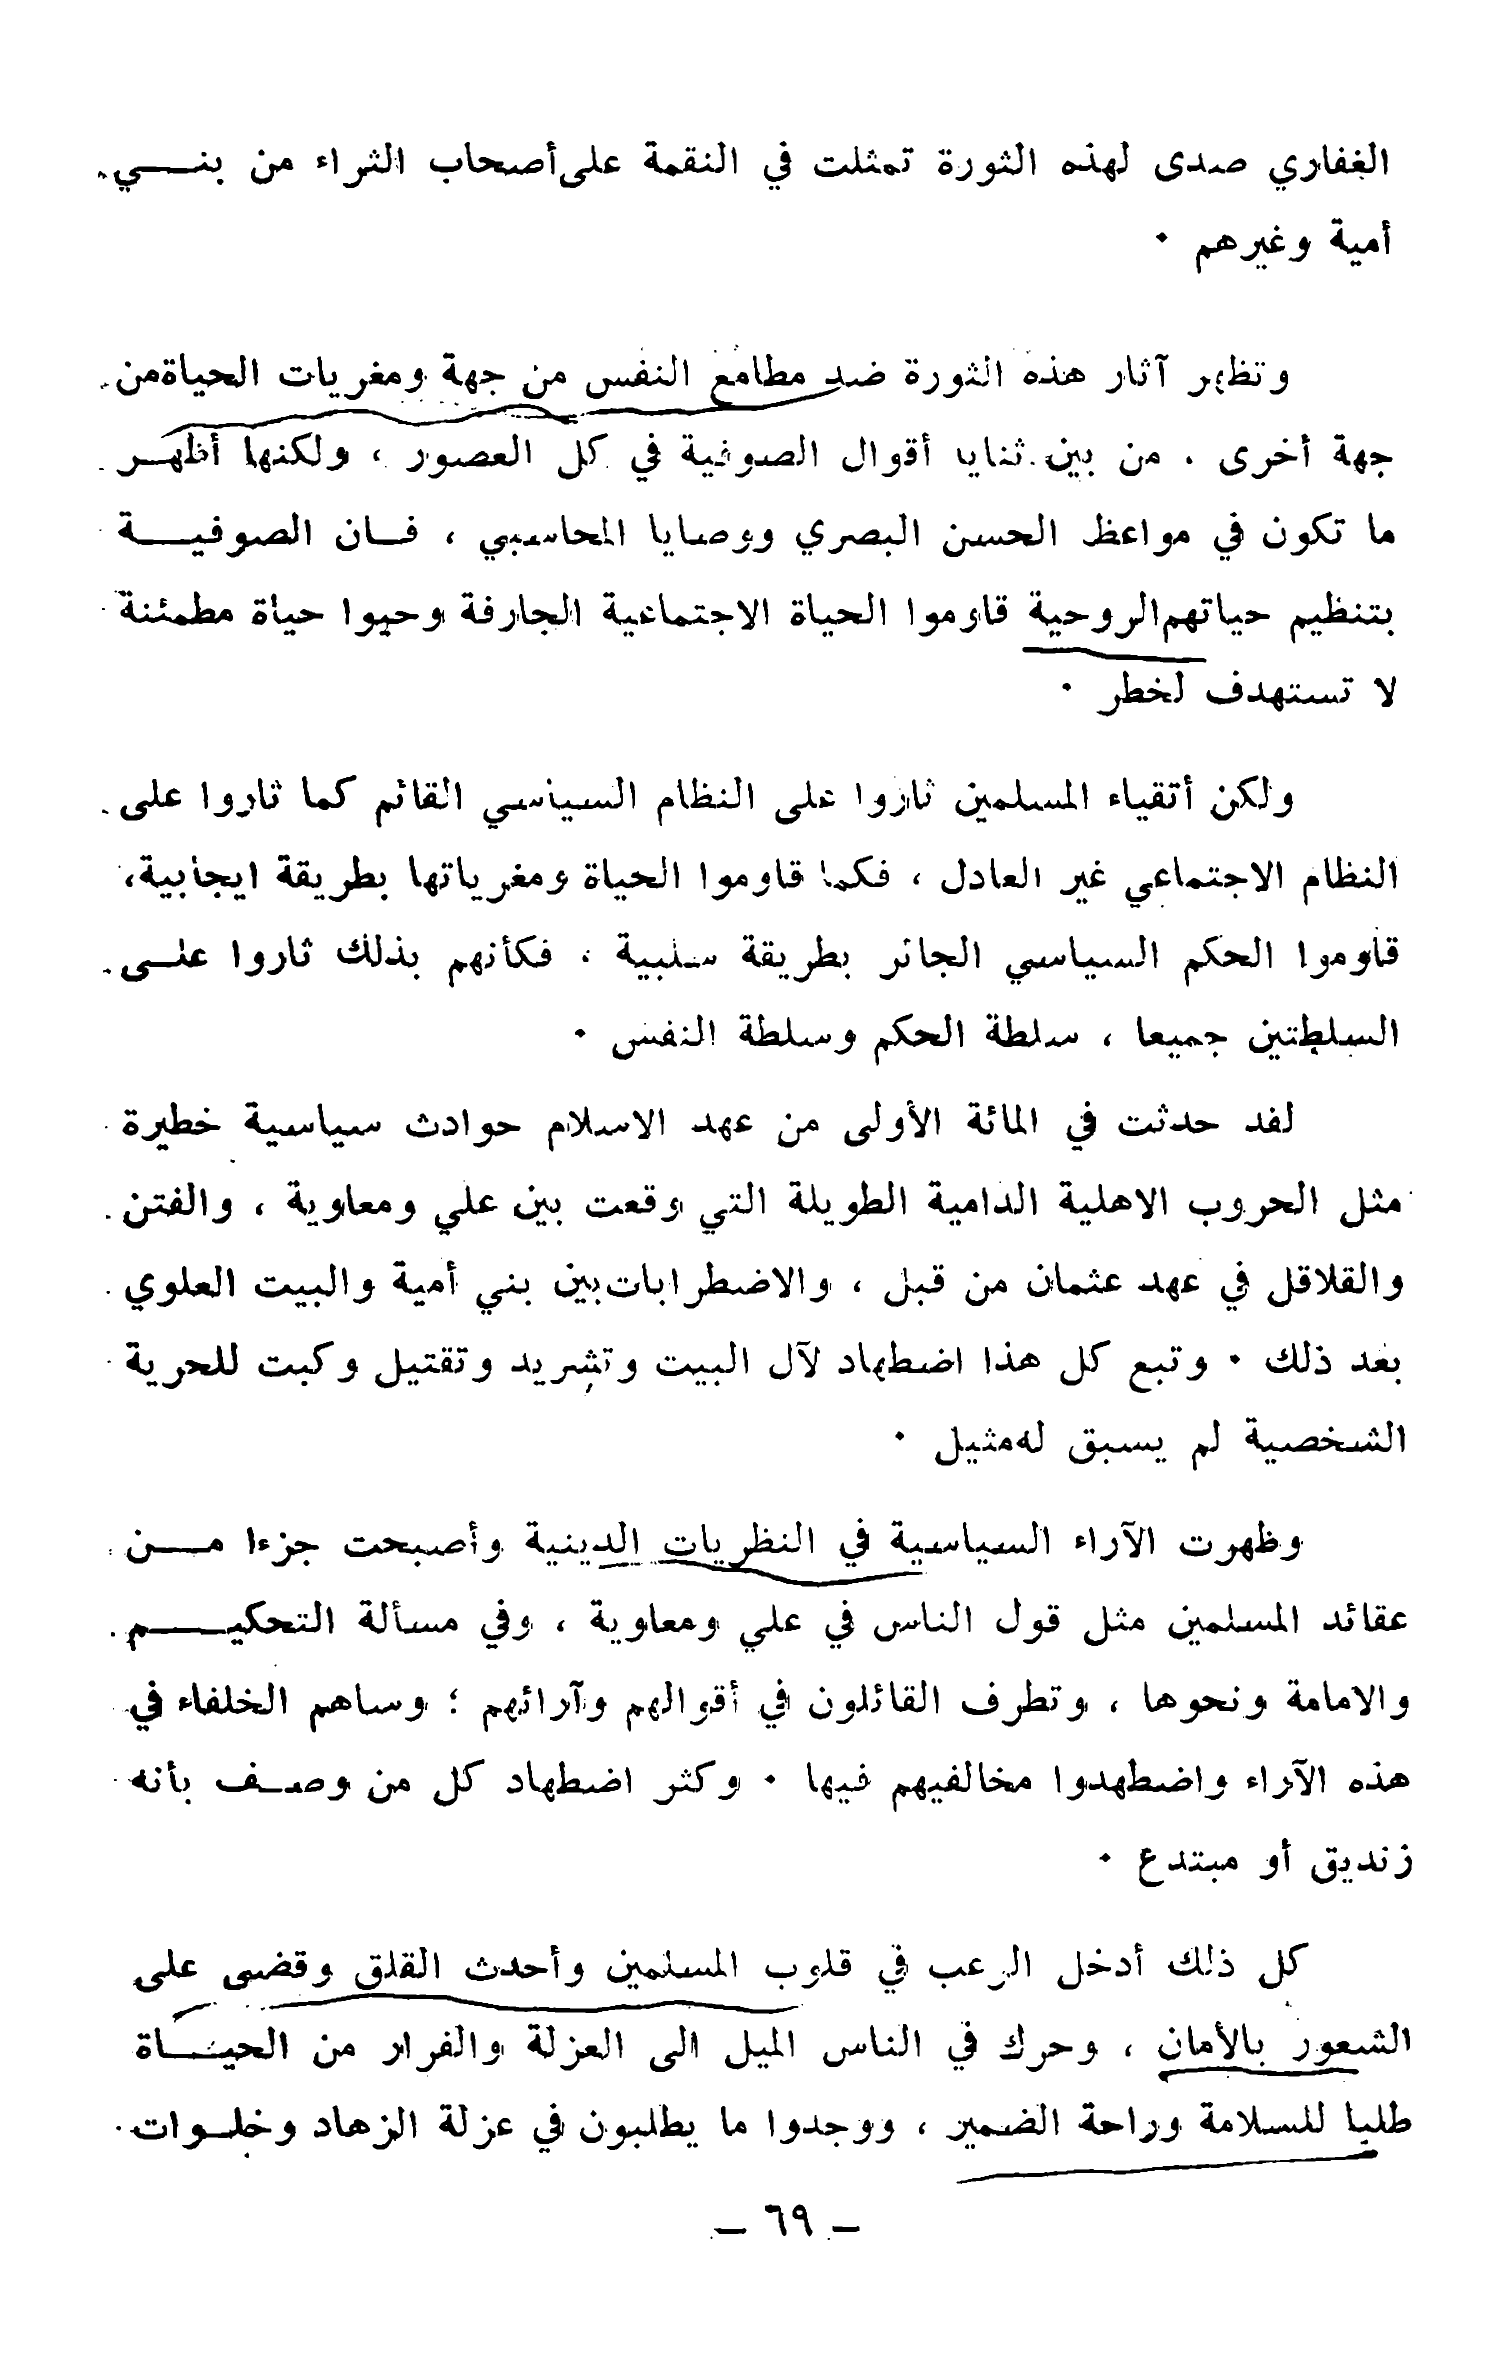 الغفاري صدى لهذه الثورة تمثلت في النقمة على أصحاب الثراء من بنـــي
أمية وغيرهم ٠
وتظهر آثار هذه الثورة ضد مطامع النفس من جهة ومغريات الحياة من
جهة أخرى ، من بين ثنايا أقوال الصوفية في كل العصور ، ولكنها أظهـر
ما تكون في مواعظ الحسن البصري ووصايا المحاسبي ، فـان الصوفيــة
بتنظيم حياتهم الروحية قاوموا الحياة الاجتماعية الجارفة وحيوا حياة مطمئنة
لا تستهدف لخطر ٠
ولكن أتقياء المسلمين ثاروا على النظام السياسي القائم كما ثاروا على
النظام الاجتماعي غير العادل ، فكما قاوموا الحياة ومغرياتها بطريقة ايجابية،
قاوموا الحكم السياسي الجائر بطريقة سلبية ، فكأنهم بذلك ثاروا علـى
السلطتين جميعا ، سلطة الحكم وسلطة النفس ٠
لقد حدثت في المائة الأولى من عهد الاسلام حوادث سياسية خطيرة
مثل الحروب الاهلية الدامية الطويلة التي وقعت بين علي ومعاوية ، والفتن
والقلاقل في عهد عثمان من قبل ، والاضطرابات بين بني أمية والبيت العلوي
بعد ذلك ٠ وتبع كل هذا اضطهاد لآل البيت وتشريد وتقتيل وكبت للحرية
الشخصية لم يسبق له مثيل ٠
وظهرت الآراء السياسية في النظريات الدينية وأصبحت جزءا مـــن
عقائد المسلمين مثل قول الناس في علي ومعاوية ، وفي مسألة التحكيـــم
والامامة ونحوها ، وتطرف القائلون في أقوالهم وآرائهم ؛ وساهم الخلفاء في
هذه الآراء واضطهدوا مخالفيهم فيها ٠ وكثر اضطهاد كل من وصـف بأنه
زنديق أو مبتدع ٠
كل ذلك أدخل الرعب في قلوب المسلمين وأحدث القلق وقضى على
الشعور بالأمان ، وحرك في الناس الميل الى العزلة والفرار من الحيــاة
طلبا للسلامة وراحة الضمير ، ووجدوا ما يطلبون في عزلة الزهاد وخلـوات
– ٦٩ –